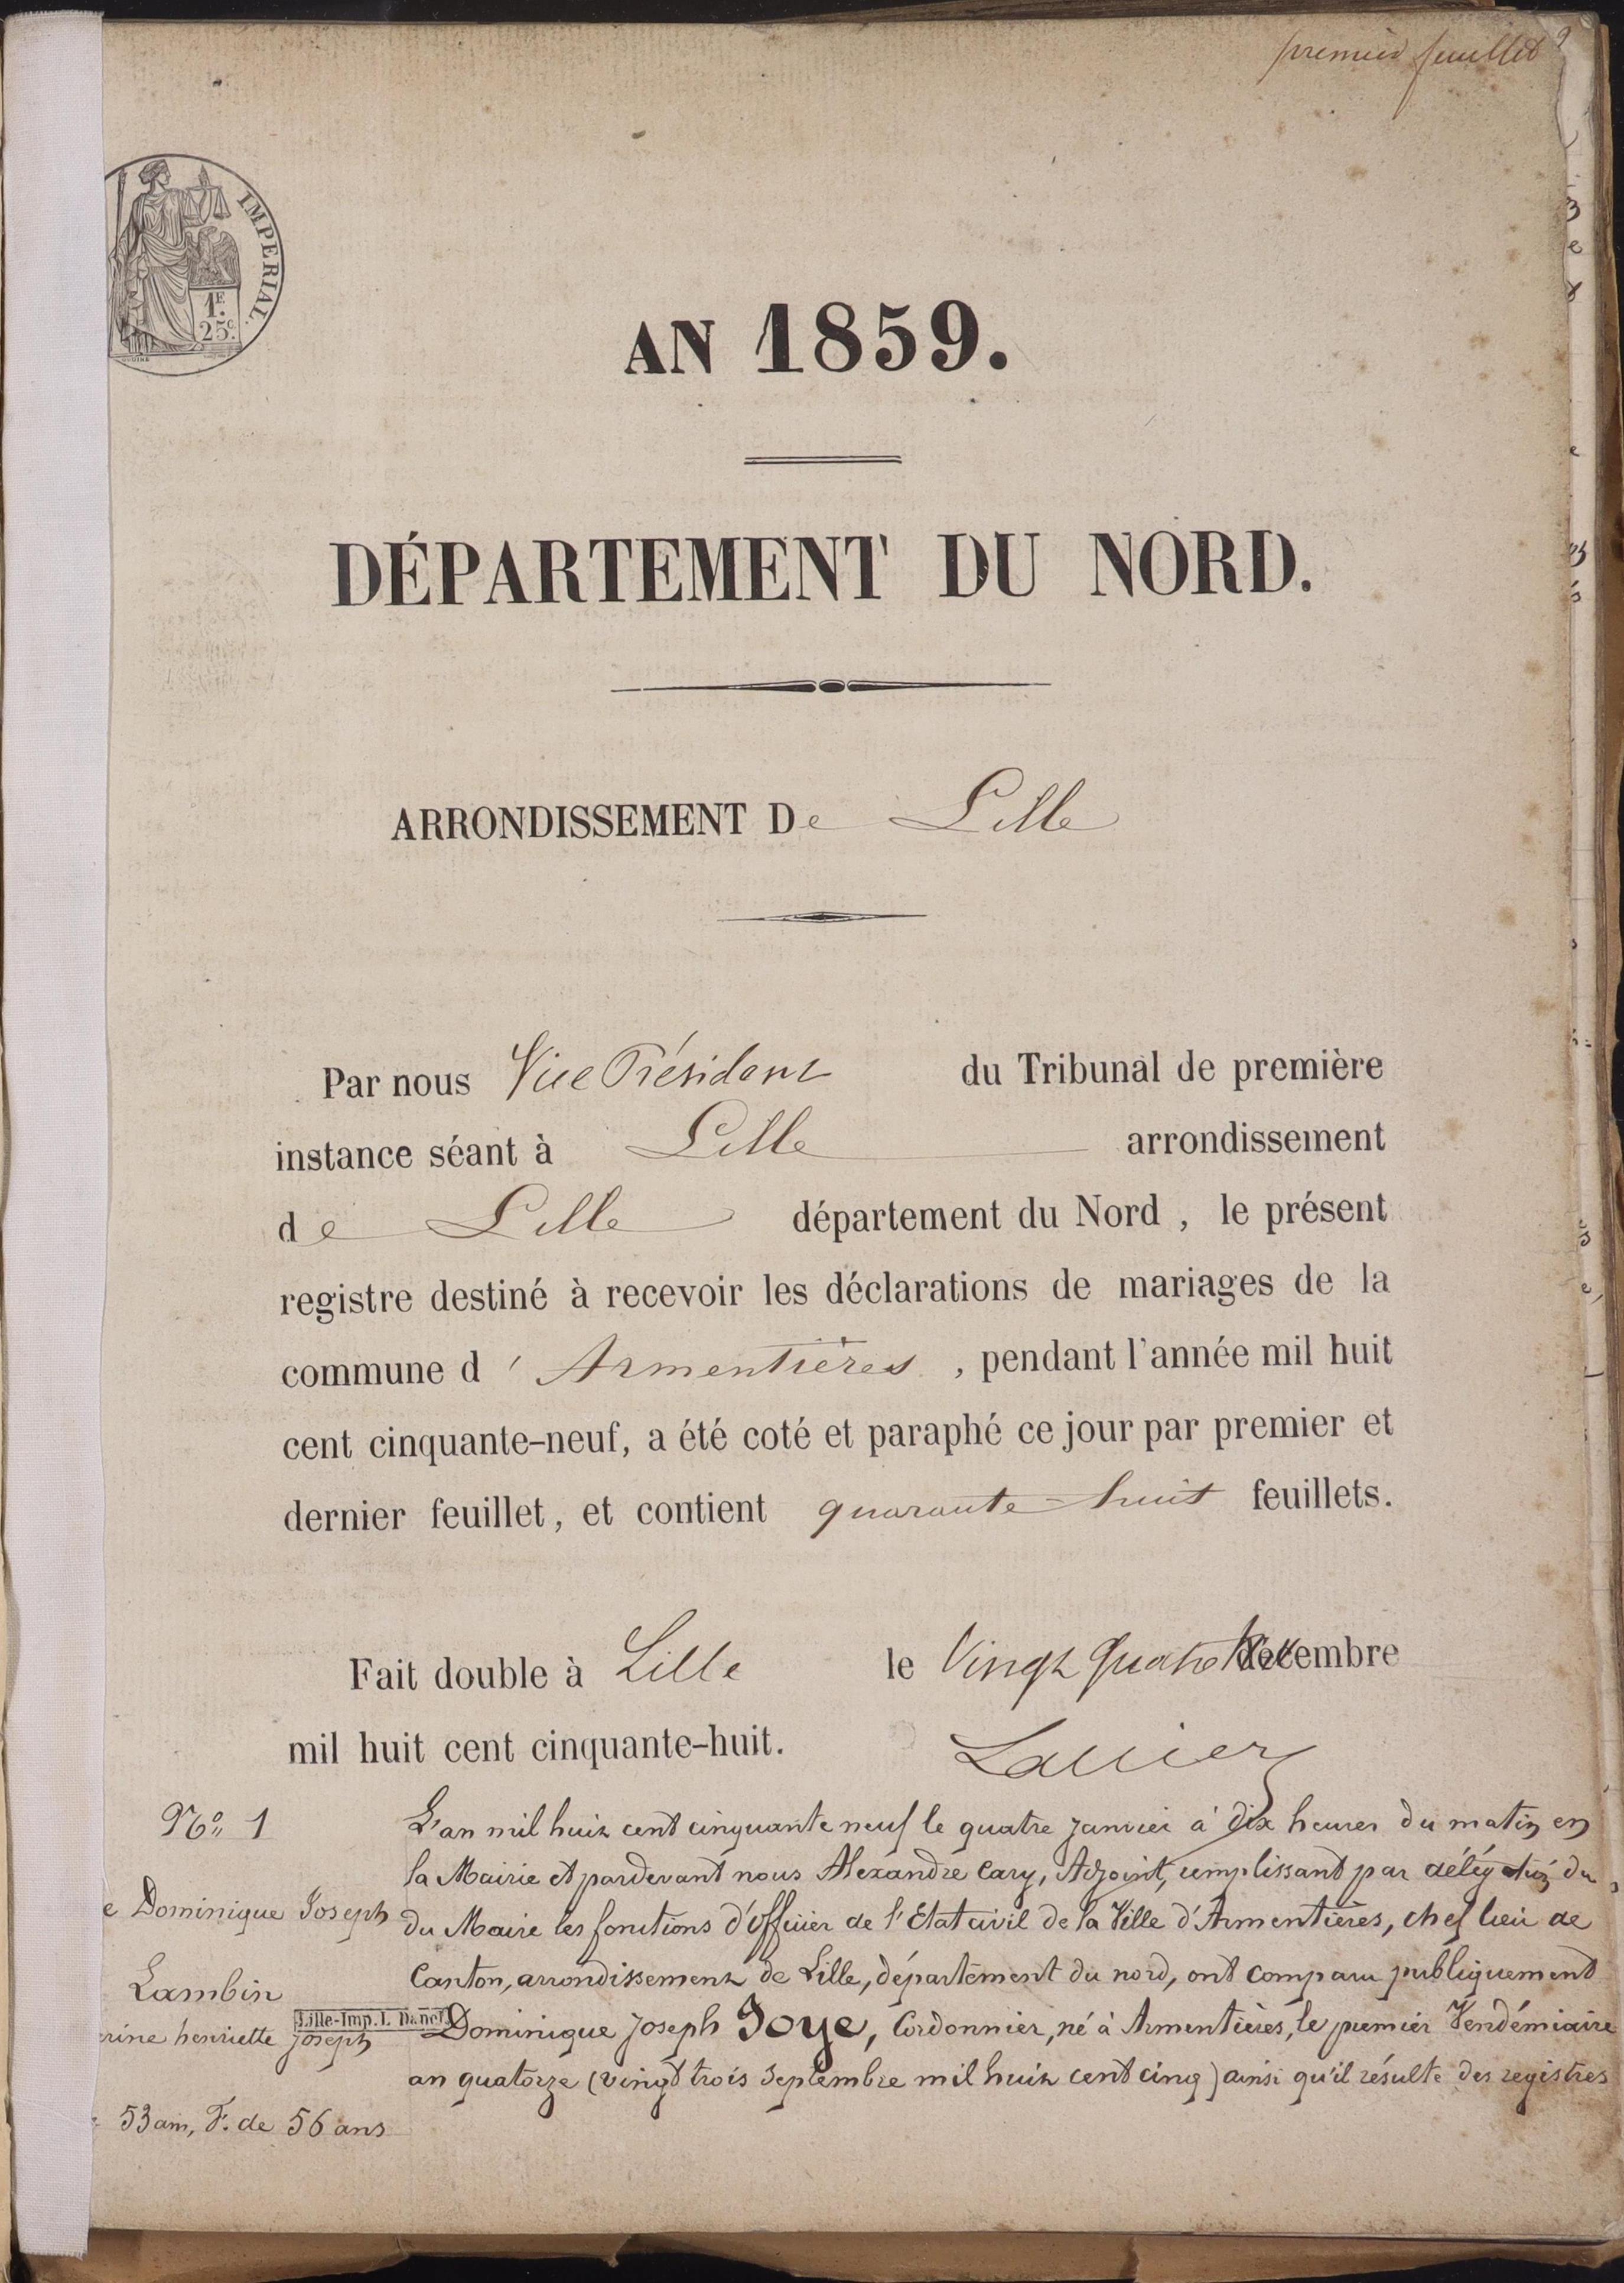 premier feuillet
IMPERIAL.
1F.
25c.
AN 1859.
DÉPARTEMENT DU NORD.
ARRONDISSEMENT De Lille
Par nous Vice Président du Tribunal de première
instance séant à Lille arrondissement
de Lille département du Nord, le présent
registre destiné à recevoir les déclarations de mariages de la
commune d'Armentières, pendant l'année mil huit
cent cinquante-neuf, a été coté et paraphé ce jour par premier et
dernier feuillet, et contient quarante huit feuillets.
Fait double à Lille le Vingt quatre décembre
mil huit cent cinquante-huit.
No. 1
e Dominique Joseph
Lambin
rine henriette Joseph
53 ans, F. de 56 ans
Lille-Imp. L. Danel
L'an mil huit cent cinquante neuf le quatre janvier à dix heures du matin en
la Mairie et pardevant nous Alexandre Cary, Adjoint, remplissant par délégation du
du Maire les fonctions d'officier de l'Etat civil de la Ville d'Armentières, chef lieu de
Canton, arrondissement de Lille, département du nord, ont comparu publiquement
Dominique Joseph Joye, Cordonnier, né à Armentières, le premier Vendémiaire
an quatorze (vingt trois Septembre mil huit cent cinq) ainsi qu'il résulte des registres